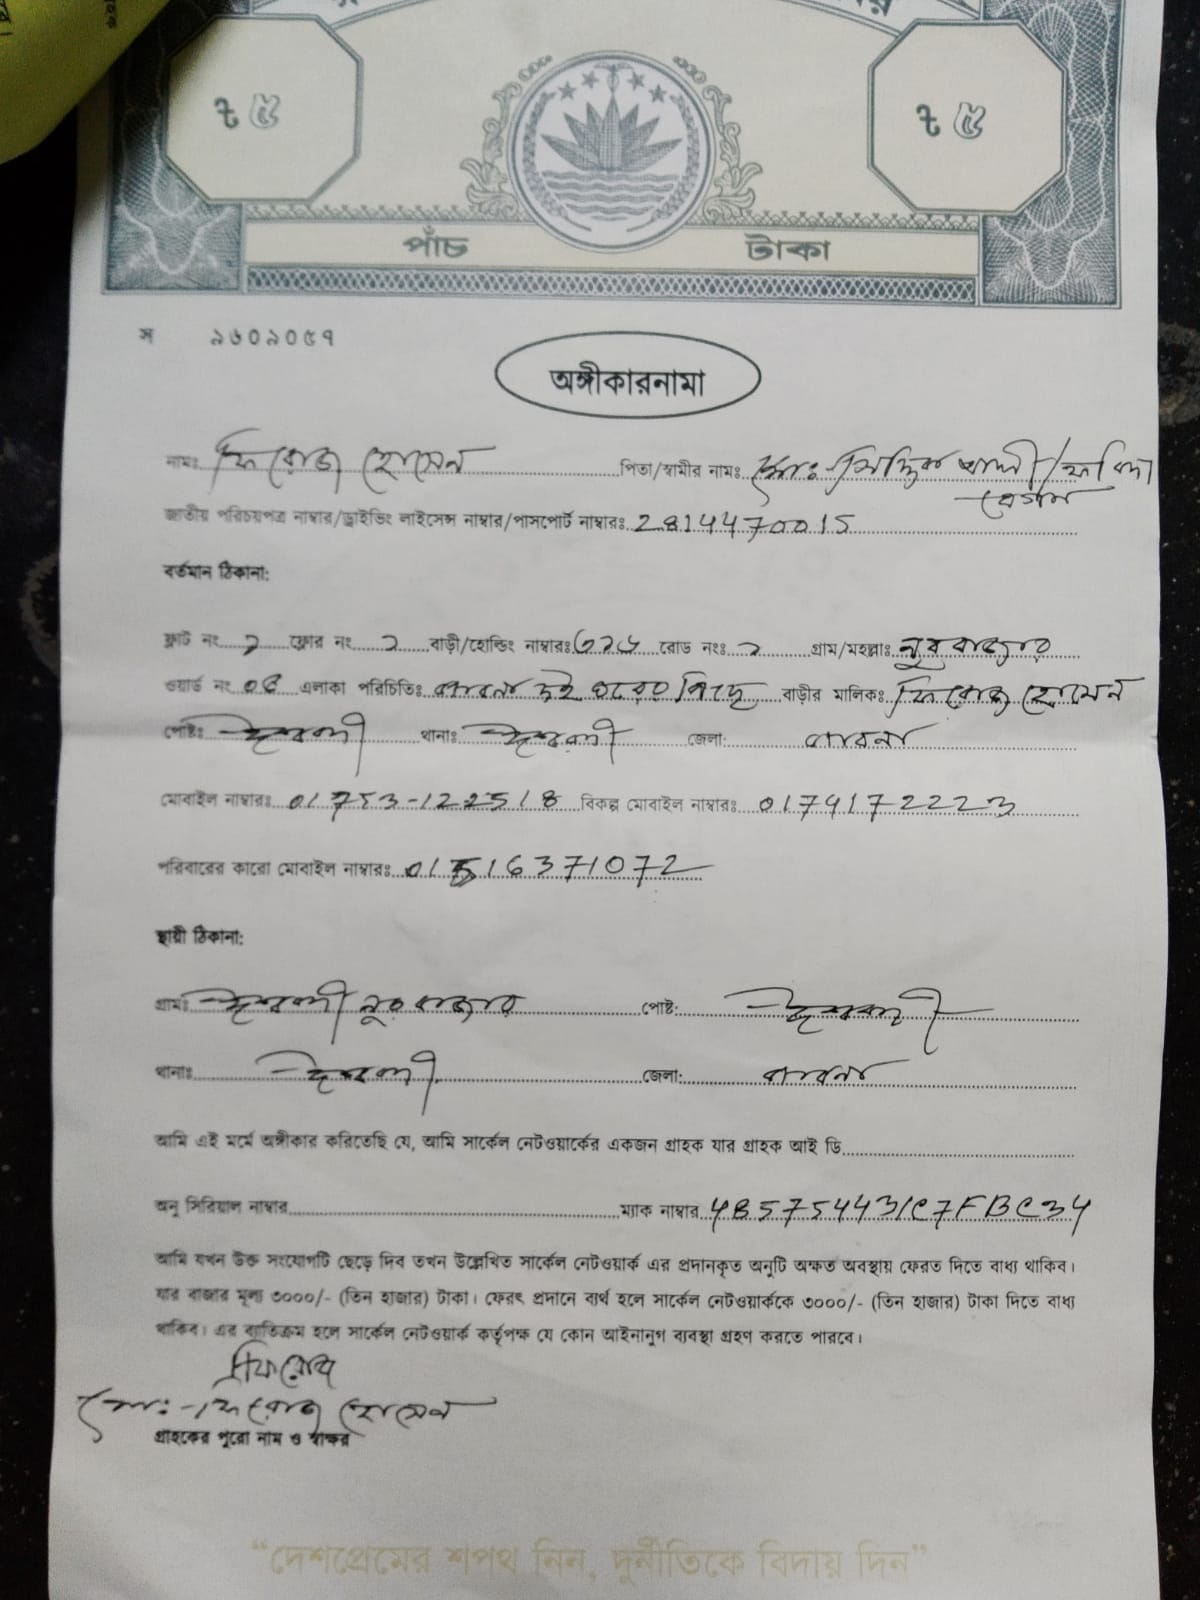 ৳ ৫ ৳ ৫
পাঁচ টাকা
স ৯৬০৯০৫৭
অঙ্গীকারনামা
নামঃ ফিরোজ হোসেন পিতা/স্বামীর নামঃ মোঃ সিদ্দিক আলী/ফরিদা
বেগম
জাতীয় পরিচয়পত্র নাম্বার/ড্রাইভিং লাইসেন্স নাম্বার/পাসপোর্ট নাম্বারঃ 2814470015
বর্তমান ঠিকানা:
ফ্লাট নং ফ্লোর নং বাড়ী/হোল্ডিং নাম্বারঃ রোড নংঃ গ্রাম/মহল্লাঃ নুর বাজার
ওয়ার্ড নং ০৫ এলাকা পরিচিতিঃ বাড়ীর মালিকঃ ফিরোজ হোসেন
পোষ্টঃ ঈশ্বরদী থানাঃ ঈশ্বরদী জেলা: পাবনা
মোবাইল নাম্বারঃ 01753-122518 বিকল্প মোবাইল নাম্বারঃ 01741722223
পরিবারের কারো মোবাইল নাম্বারঃ
স্থায়ী ঠিকানা:
গ্রামঃ ঈশ্বরদী নুর বাজার পোষ্ট: ঈশ্বরদী
থানাঃ ঈশ্বরদী জেলা: পাবনা
আমি এই মর্মে অঙ্গীকার করিতেছি যে, আমি সার্কেল নেটওয়ার্কের একজন গ্রাহক যার গ্রাহক আই ডি
অনু সিরিয়াল নাম্বার ম্যাক নাম্বার 485754431C7FBC34
আমি যখন উক্ত সংযোগটি ছেড়ে দিব তখন উল্লেখিত সার্কেল নেটওয়ার্ক এর প্রদানকৃত অনুটি অক্ষত অবস্থায় ফেরত দিতে বাধ্য থাকিব।
যার বাজার মূল্য ৩০০০/- (তিন হাজার) টাকা। ফেরৎ প্রদানে ব্যর্থ হলে সার্কেল নেটওয়ার্ককে ৩০০০/- (তিন হাজার) টাকা দিতে বাধ্য
থাকিব। এর ব্যতিক্রম হলে সার্কেল নেটওয়ার্ক কর্তৃপক্ষ যে কোন আইনানুগ ব্যবস্থা গ্রহণ করতে পারবে।
ফিরোজ
মোঃ ফিরোজ হোসেন
গ্রাহকের পুরো নাম ও স্বাক্ষর
“দেশপ্রেমের শপথ নিন, দুর্নীতিকে বিদায় দিন”